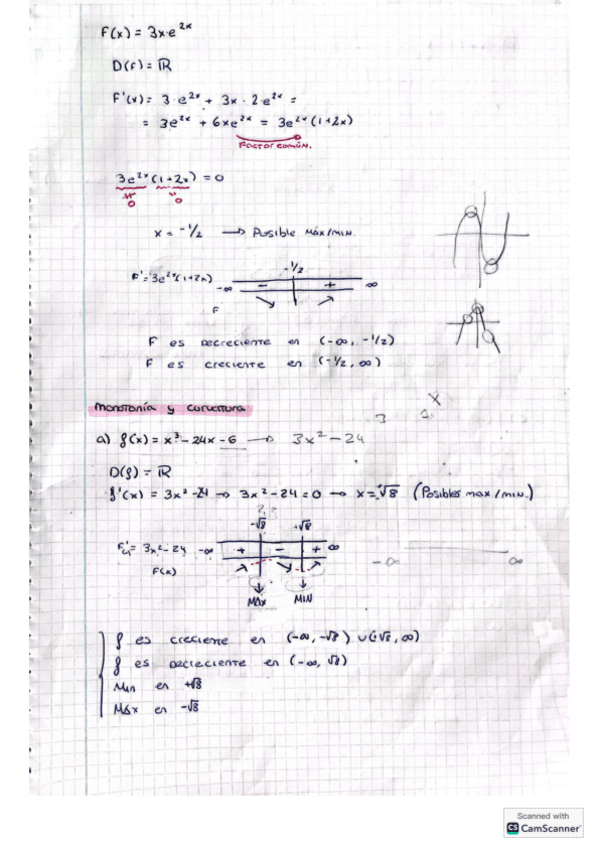 F(x) = 3x·e^2x
D(F) = ℝ
F'(x) = 3·e^2x + 3x·2·e^2x =
= 3e^2x + 6xe^2x = 3e^2x (1+2x)
Factor común.
3e^2x (1+2x) = 0
0 0
x = -1/2 → Posible Máx/min.
-1/2
F' = 3e^2x(1+2x) -∞ - + ∞
F
F es Decreciente en (-∞, -1/2)
F es creciente en (-1/2, ∞)
Monotonía y curvatura
3 x
a) f(x) = x³ - 24x - 6 → 3x² - 24
D(f) = ℝ
f'(x) = 3x² - 24 → 3x² - 24 = 0 → x = ±√8 (Posibles max/min.)
-√8 +√8
F' = 3x² - 24 -∞ + - + ∞
F(x) -∞ ∞
MÁX MIN
f es creciente en (-∞, -√8) ∪ (+√8, ∞)
f es decreciente en (-∞, √8)
Min en +√8
Máx en -√8
Scanned with
CS CamScanner